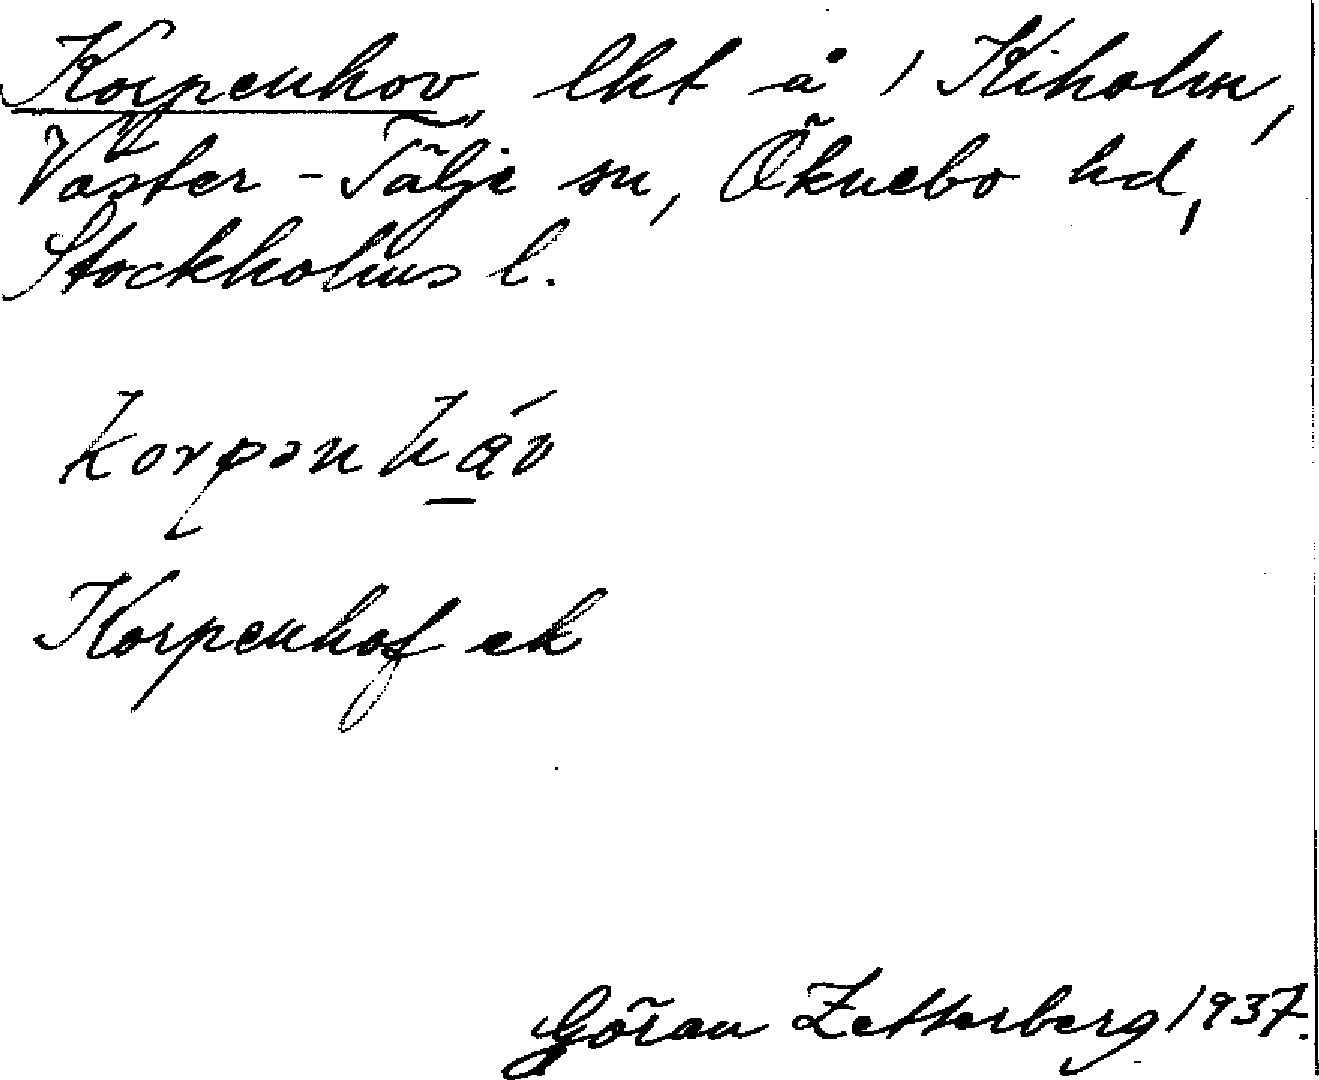 Korpenhov, lht å 1 Kiholm,
Väster-Tälje sn, Öknebo hd,
Stockholms l.
korpənhåv
Korpenhof ek
Göran Zetterberg 1937.